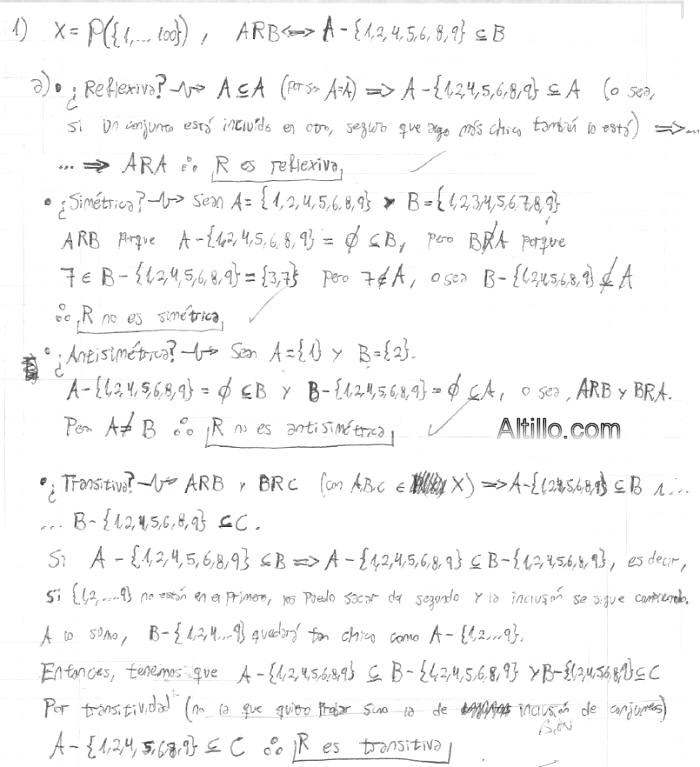 1) X = P({1,...100}) , ARB <=> A-{1,2,4,5,6,8,9} ⊆ B
a) • ¿Reflexiva? → A⊆A (por ser A=A) => A-{1,2,4,5,6,8,9} ⊆ A (o sea,
si un conjunto está incluido en otro, seguro que algo más chico también lo está) => ...
... => ARA ∴ R es reflexiva
• ¿Simétrica? → Sean A={1,2,4,5,6,8,9} y B={1,2,3,4,5,6,7,8,9}
ARB porque A-{1,2,4,5,6,8,9} = ∅ ⊆ B, pero BR̸A porque
7 ∈ B-{1,2,4,5,6,8,9}={3,7} pero 7∉A, o sea B-{1,2,4,5,6,8,9} ⊄ A
∴ R no es simétrica
• ¿Antisimétrica? → Sean A={1} y B={2}.
A-{1,2,4,5,6,8,9} = ∅ ⊆ B y B-{1,2,4,5,6,8,9} = ∅ ⊆ A, o sea, ARB y BRA.
Pero A≠B ∴ R no es antisimétrica
Altillo.com
• ¿Transitiva? → ARB y BRC (con A,B,C ∈ X) => A-{1,2,4,5,6,8,9} ⊆ B ∧ ...
... B-{1,2,4,5,6,8,9} ⊆ C.
Si A-{1,2,4,5,6,8,9} ⊆ B => A-{1,2,4,5,6,8,9} ⊆ B-{1,2,4,5,6,8,9}, es decir,
si {1,2,...,9} no están en el primero, los puedo sacar del segundo y la inclusión se sigue cumpliendo.
A lo sumo, B-{1,2,4...9} quedará tan chico como A-{1,2...9}.
Entonces, tenemos que A-{1,2,4,5,6,8,9} ⊆ B-{1,2,4,5,6,8,9} y B-{1,2,4,5,6,8,9} ⊆ C
Por transitividad (no la que quiero probar sino la de inclusión de conjuntos)
BIEN
A-{1,2,4,5,6,8,9} ⊆ C ∴ R es transitiva